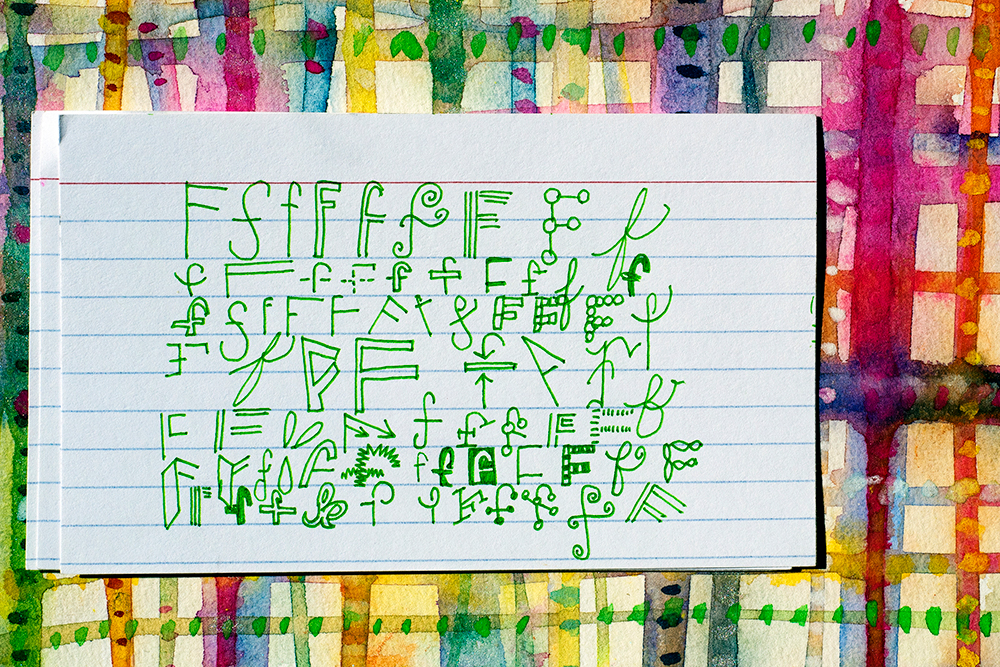 F f f F f f F F f
f F f f f f F f f f
f f f F F F f f F F F f
F f F F f F f
F F f F f f f F F f
F F f F F f f F F F f F
F f f f f f F f f f F